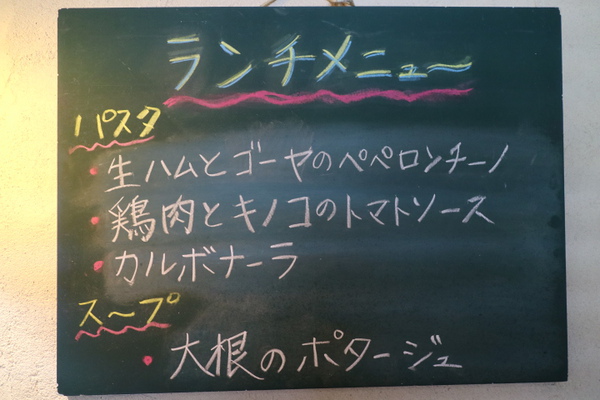 ランチメニュー
パスタ
・生ハムとゴーヤのペペロンチーノ
・鶏肉とキノコのトマトソース
・カルボナーラ
スープ
・大根のポタージュ